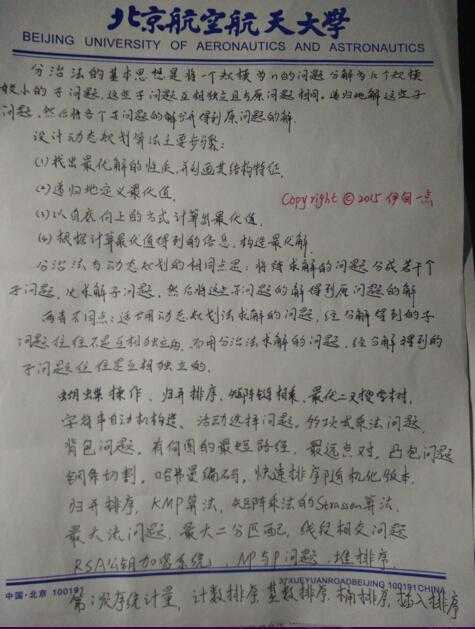 北京航空航天大學
BEIJING UNIVERSITY OF AERONAUTICS AND ASTRONAUTICS
分治法的基本思想是将一个规模为n的问题分解为k个规模
较小的子问题,这些子问题互相独立且与原问题相同,递归地解这些子
问题,然后将各个子问题的解合并得到原问题的解.
设计动态规划算法主要步骤:
(1)找出最优解的性质,并刻画其结构特征.
(2)递归地定义最优值.
Copyright © 2015 伊甸一点
(3)以自底向上的方式计算出最优值.
(4)根据计算最优值得到的信息,构造最优解.
分治法与动态规划的相同点是:将待求解的问题分成若干个
子问题,先求解子问题,然后将这些子问题的解得到原问题的解
两者不同点:适合用动态规划法求解的问题,经分解得到的子
问题往往不是互相独立的,而用分治法求解的问题,经分解得到的
子问题往往是互相独立的.
蝴蝶操作、归并排序,矩阵链相乘,最优二叉搜索树,
字符串自动机构造、活动选择问题,多项式乘法问题,
背包问题,有向图的最短路径,最远点对,凸包问题
钢条切割,哈弗曼编码,快速排序随机化版本,
归并排序,KMP算法,矩阵乘法的Strassen算法,
最大流问题,最大二分匹配,线段相交问题
RSA公钥加密系统,NP与P问题,堆排序,
中国·北京 100191
XUEYUANROADBEIJING 100191CHINA
第i次序统计量,计数排序,基数排序,桶排序,插入排序